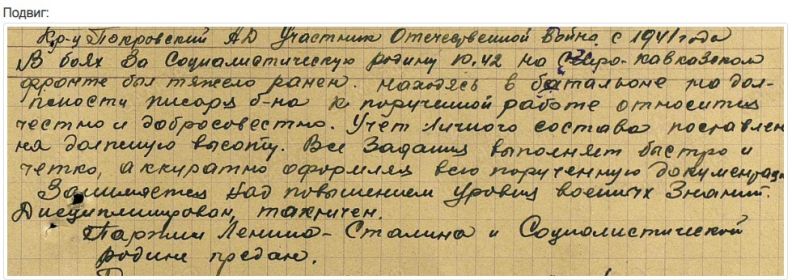 Подвиг:
Кр-ц Покровский АД Участник Отечественной Войны с 1941 года
В боях за Социалистическую родину 10.42 на Северо-кавказском
фронте был тяжело ранен. Находясь в батальоне на дол-
жности писаря б-на к порученной работе относится
честно и добросовестно. Учет личного состава поставлен
на должную высоту. Все Задания выполняет быстро и
четко, аккуратно оформляя всю порученную документац
Занимается над повышением Уровня военных Знаний.
Дисциплинирован, тактичен.
Партии Ленина-Сталина и Социалистической
родине предан.